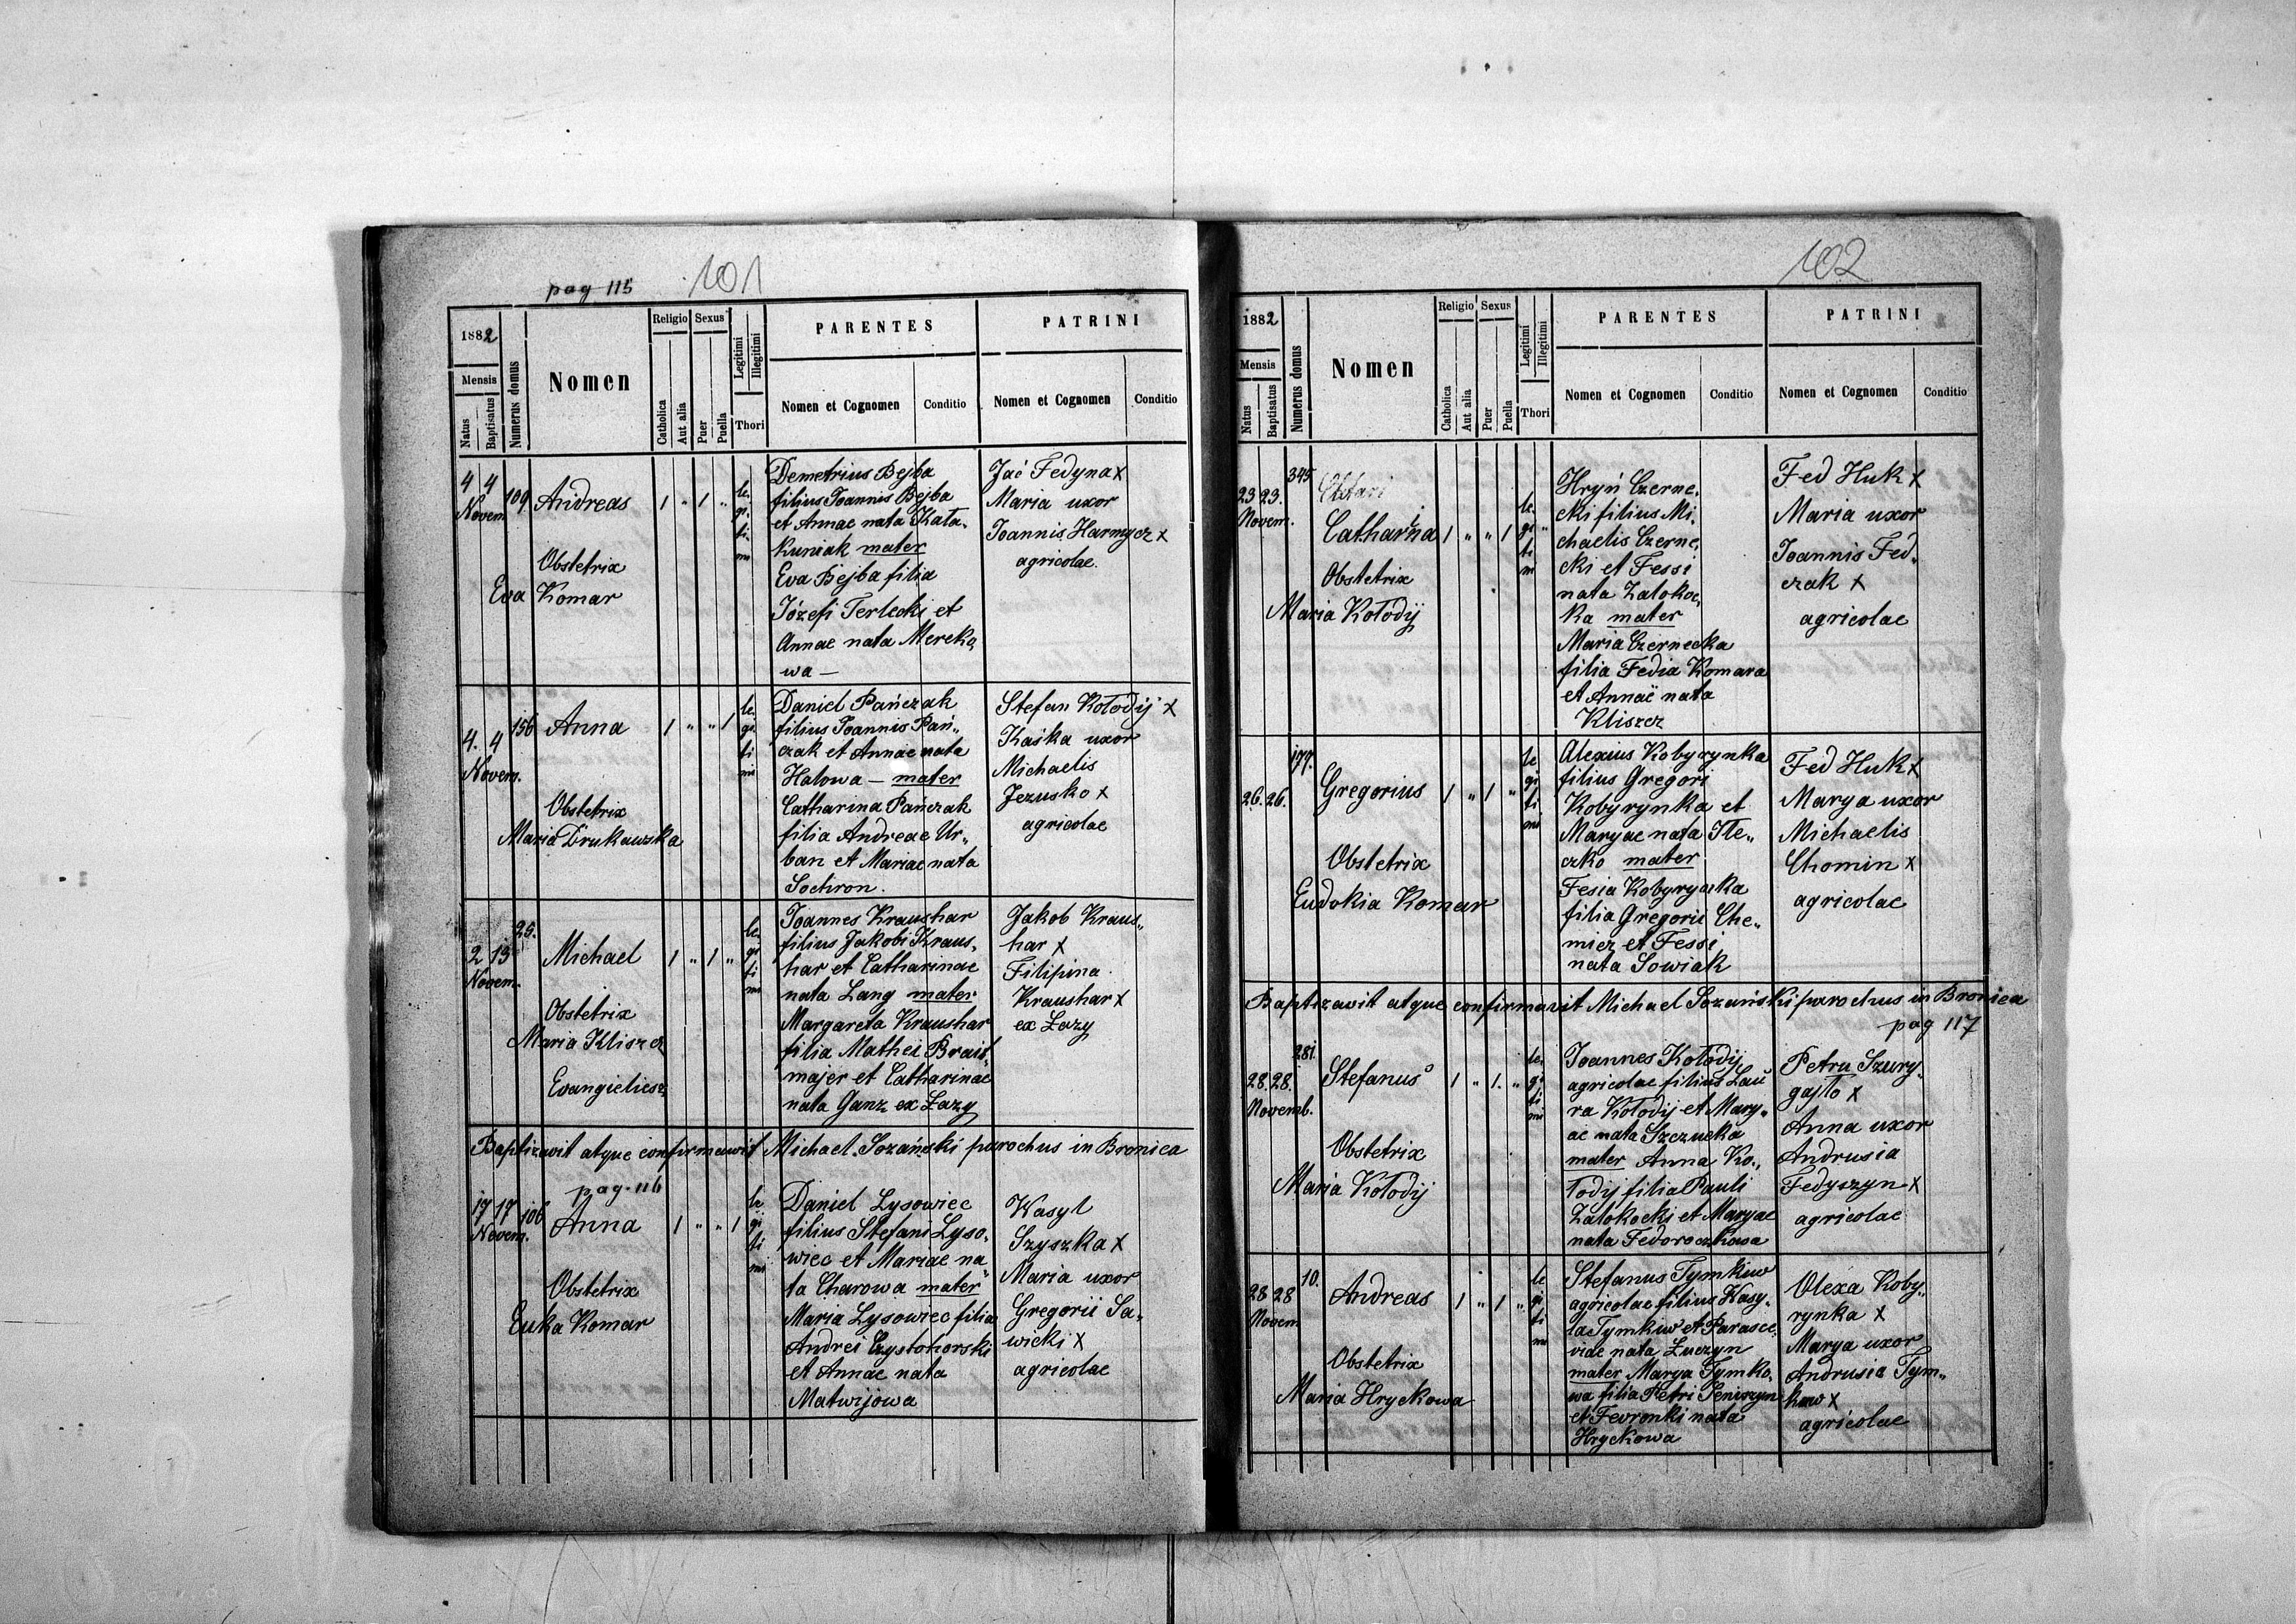 pag 115
101
1882
Mensis
Natus
Baptisatus
Numerus domus
Nomen
Religio
Catholica
Aut alia
Sexus
Puer
Puella
Legitimi
Illegitimi
Thori
PARENTES
Nomen et Cognomen
Conditio
PATRINI
Nomen et Cognomen
Conditio
4 4
Novem.
109
Andreas
Obstetrix
Eva Komar
1 " 1 "
le.
gi.
ti.
mi
Demetrius Bejba
filius Joannis Bejba
et Annae nata Kata-
kuniak mater
Eva Bejba filia
Józefi Terlecki et
Annae nata Mereko,
wa —
Jać Fedyna x
Maria uxor
Joannis Harmycz x
agricolae.
4. 4
Novem.
156
Anna
Obstetrix
Maria Drukawska
1 " " 1
le.
gi.
ti
mi
Daniel Pańczak
filius Joannis Pań„
czak et Annae nata
Halowa — mater
Catharina Pańczak
filia Andreae Ur„
ban et Mariae nata
Sochron.
Stefan Kołodij x
Kaśka uxor
Michaelis
Jezusko x
agricolae
2 13
Novem.
25.
Michael
Obstetrix
Maria Kliszcz
Evangieliesz
1 " 1 "
le.
gi
ti
mi
Joannes Kraushar
filius Jakobi Kraus,
har et Catharinae
nata Lang mater
Margareta Kraushar
filia Mathei Brait,
majer et Catharinae
nata Ganz ex Łazy
Jakob Kraus„
har x
Filipina
Kraushar x
ex Łazy
Baptizavit atque confirmavit Michael Sozański parochus in Bronica
pag. 116
17 17
Novem.
106
Anna
Obstetrix
Euka Komar
1 " " 1
le
gi
ti
mi
Daniel Lysowiec
filius Stefani Lyso,
wiec et Mariae na„
ta Charowa mater
Maria Lysowiec filia
Andrei Czystohorski
et Annae nata
Matwijowa
Wasyl
Szyszka x
Maria uxor
Gregorii Sa„
wicki x
agricolae
102
1882
Mensis
Natus
Baptisatus
Numerus domus
Nomen
Religio
Catholica
Aut alia
Sexus
Puer
Puella
Legitimi
Illegitimi
Thori
PARENTES
Nomen et Cognomen
Conditio
PATRINI
Nomen et Cognomen
Conditio
23 23.
Novem.
345
Catharina
Obstetrix
Maria Kołodij
1 " " 1
le.
gi "
ti
mi
Hryń Czerne,
cki filius Mi,
chaelis Czerne,
cki et Fessi
nata Zalokoc,
ka mater
Maria Czernecka
filia Fedia Komara
et Annaë nata
Kliszcz
Fed Huk x
Maria uxor
Joannis Fed,
czak x
agricolae
26. 26.
177.
Gregorius
Obstetrix
Eudokia Komar
1 " 1 "
le
gi
ti
mi
Alexius Kobyrynka
filius Gregori
Kobyrynka et
Maryae nata Ste„
czko mater
Fesia Kobyrynka
filia Gregorii Che„
micz et Fessi
nata Sowiak
Fed Huk x
Marya uxor
Michaelis
Chomin x
agricolae
Baptizavit atque confirmavit Michael Sozański parochus in Bronica
pag 117
28. 28.
Novemb.
281.
Stefanus
Obstetrix
Maria Kołodij
1 " 1. "
le.
gi
ti
mi
Joannes Kołodij
agricolae filius Lau
ra Kołodij et Mary„
ae nata Szczucka
mater Anna Ko„
łodij filia Pauli
Zalokocki et Maryae
nata Fedoroczkowa
Petru Szury,
gajło x
Anna uxor
Andrusia
Fedyszyn x
agricolae
28 28
Novem
10.
Andreas
Obstetrix
Maria Hryckowa
1 " 1 "
le
gi
ti
mi
Stefanus Tymkiw
agricolae filius Wasy,
la Tymkiw et Parasce,
viae nata Łuczyn
mater Marya Tymko,
wa filia Petri Seniszyn
et Fevronki nata
Hryckowa
Olexa Koby„
rynka x
Marya uxor
Andrusia Tym„
kow x
agricolae